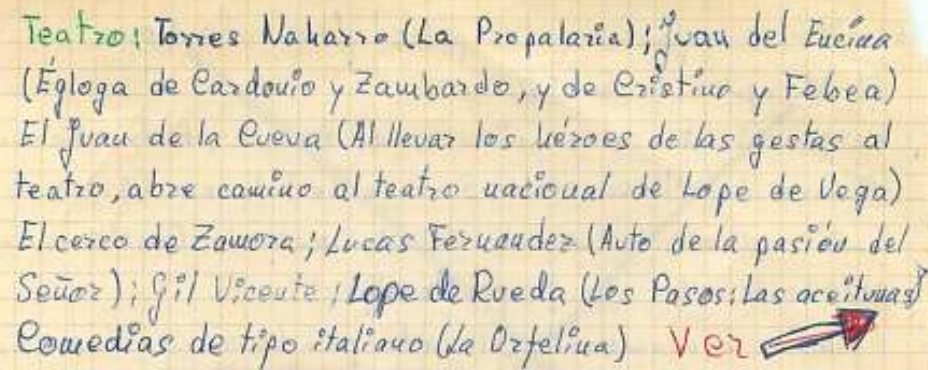 Teatro: Torres Naharro (La Propalaria); Juan del Encina
(Égloga de Cardonio y Zambardo, y de Cristino y Febea)
El Juan de la Cueva (Al llevar los héroes de las gestas al
teatro, abre camino al teatro nacional de Lope de Vega)
El cerco de Zamora; Lucas Fernandez (Auto de la pasión del
Señor); Gil Vicente; Lope de Rueda (Los Pasos: Las aceitunas)
Comedias de tipo italiano (La Orfelina) Ver